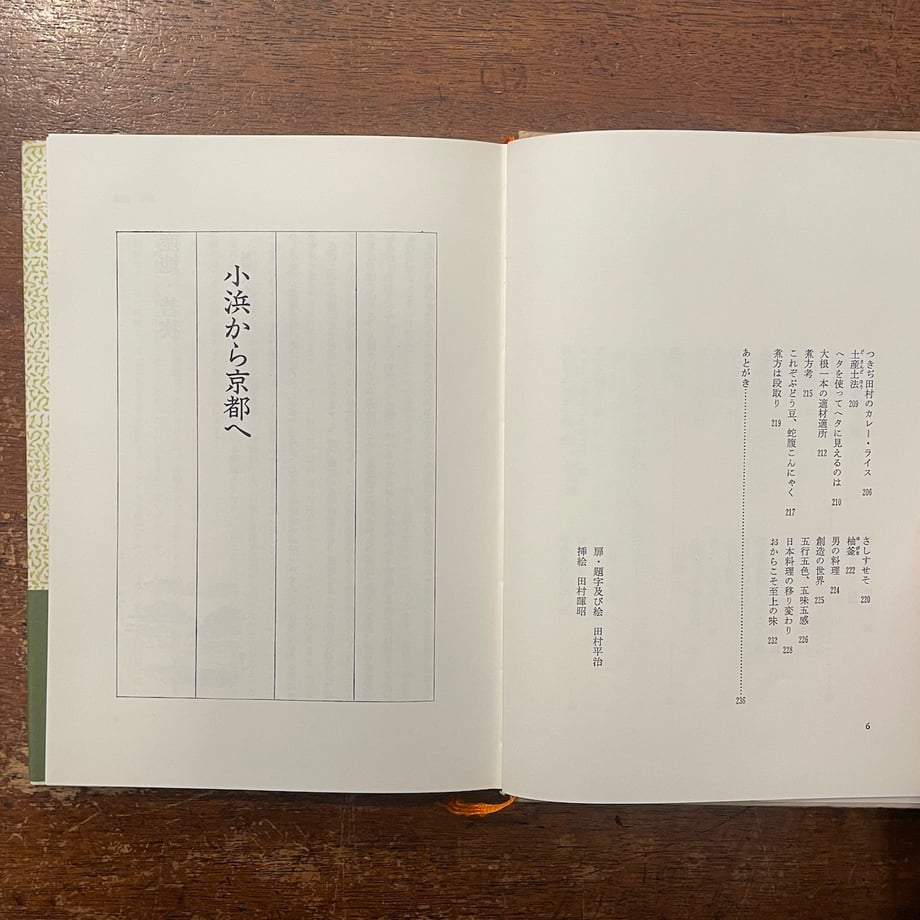 つきぢ田村のカレー・ライス 206
土産土法 209
ヘタを使ってヘタに見えるのは 210
大根一本の適材適所 212
煮方考 215
これぞぶどう豆、蛇腹こんにゃく 217
煮方は段取り 219
さしすせそ 220
柚釜 222
男の料理 224
創造の世界 225
五行五色、五味五感 226
日本料理の移り変わり 228
おからこそ至上の味 232
あとがき 236
扉・題字及び絵 田村平治
挿絵 田村暉昭
6
小浜から京都へ